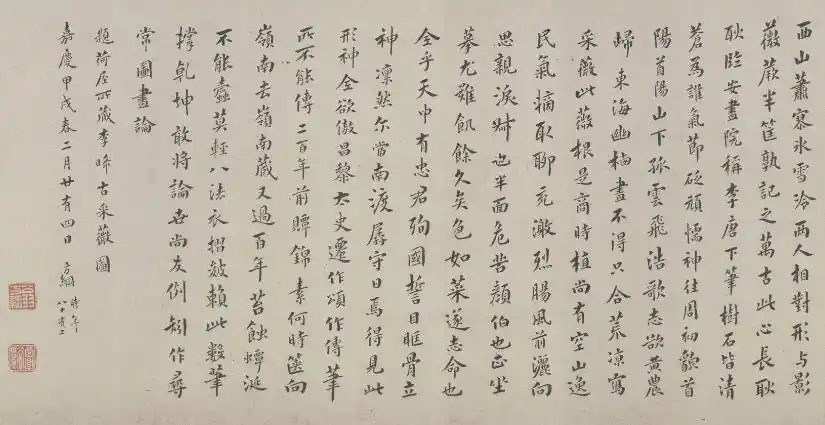 西山蕭寥氷雪冷兩人相對形與影
薇蕨半筐孰記之萬古此心長耿
耿臨安畫院稱李唐下筆樹石皆清
蒼為誰氣節砭頑懦神往周初額首
陽首陽山下孤雲飛浩歌志欲黃農
歸東海幽栖畫不得只合荒凉寫
采薇此薇根是商時植尚有空山逸
民氣摘取聊充激烈腸風前灑向
思親淚 也半面危苦顏伯也正坐
摹尤難飢餘久矣色如菜遂志命也
全乎天中有忠君殉國誓目眶骨立
神凜然尔當南渡孱守日焉得見此
形神全欲傲昌黎太史遷作頌作傳筆
所不能傳二百年前贉錦素何時篋向
嶺南去嶺南蔵又過百年苔蝕蟬涎
不能蠧莫輕八法衣摺皴賴此數筆
撐乾坤敢將論世尚友例 作尋
常圖畫論
題荷屋所藏李晞古采薇圖
嘉慶甲戌春二月廿有四日 方綱 時年
八十有二